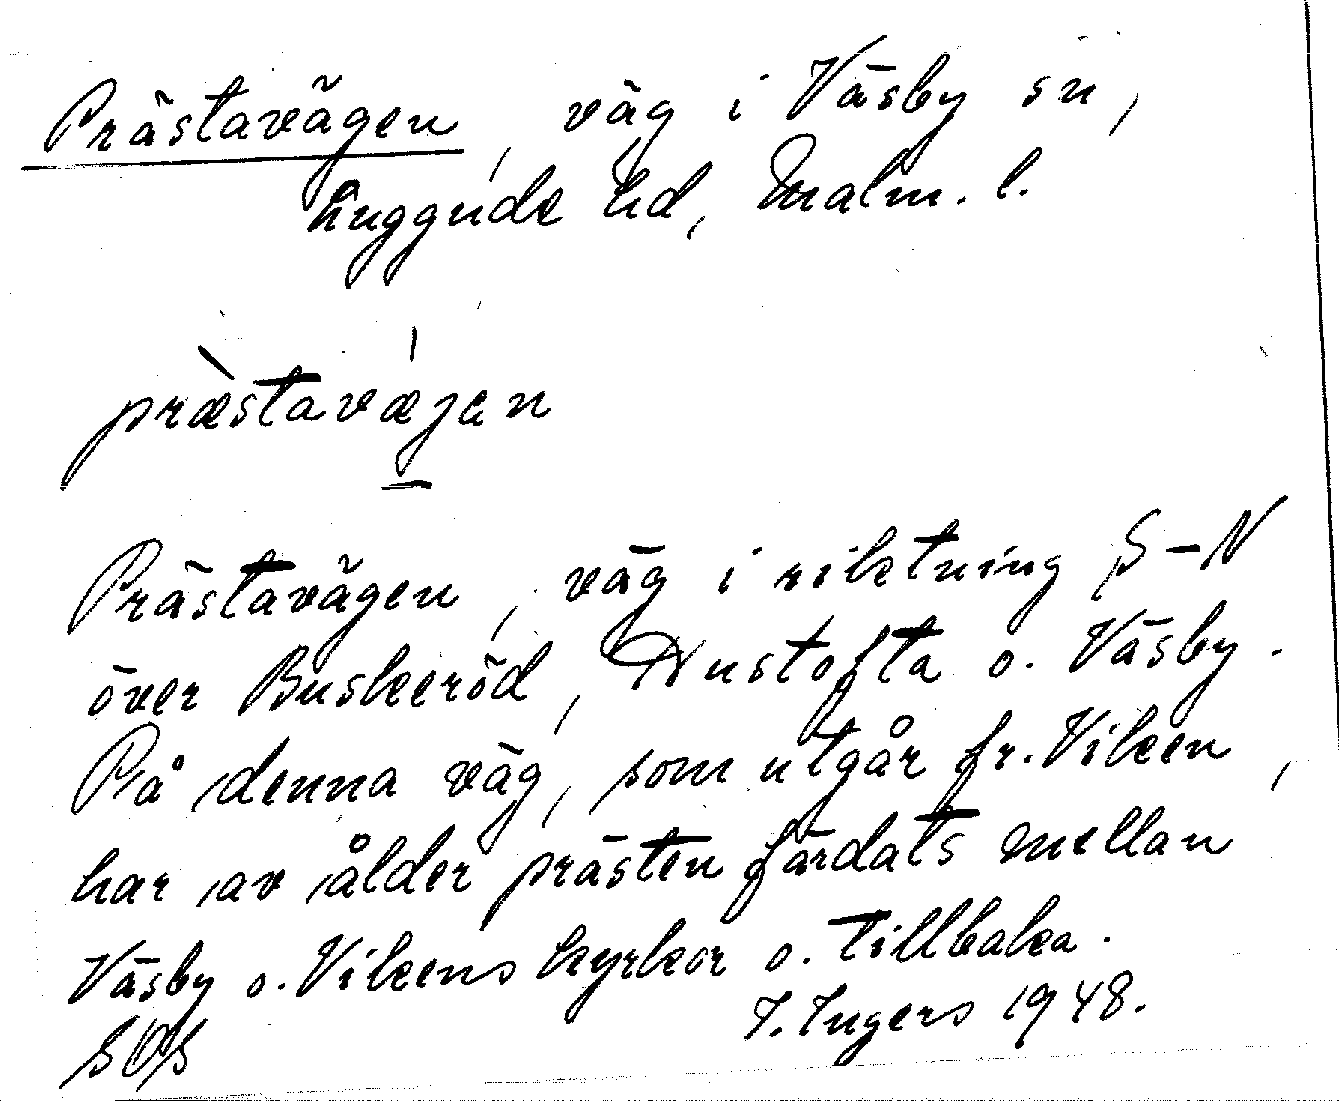 Prästavägen, väg i Väsby sn,
Luggude hd, Malm. l.
præ̀stavǽjen
Prästavägen, väg i riktning S-N
över Buskeröd, Dustofta o. Väsby.
På denna väg, som utgår fr. Viken,
har av ålder prästen färdats mellan
Väsby o. Vikens kyrkor o. tillbaka.
I. Ingers 1948.
SOS